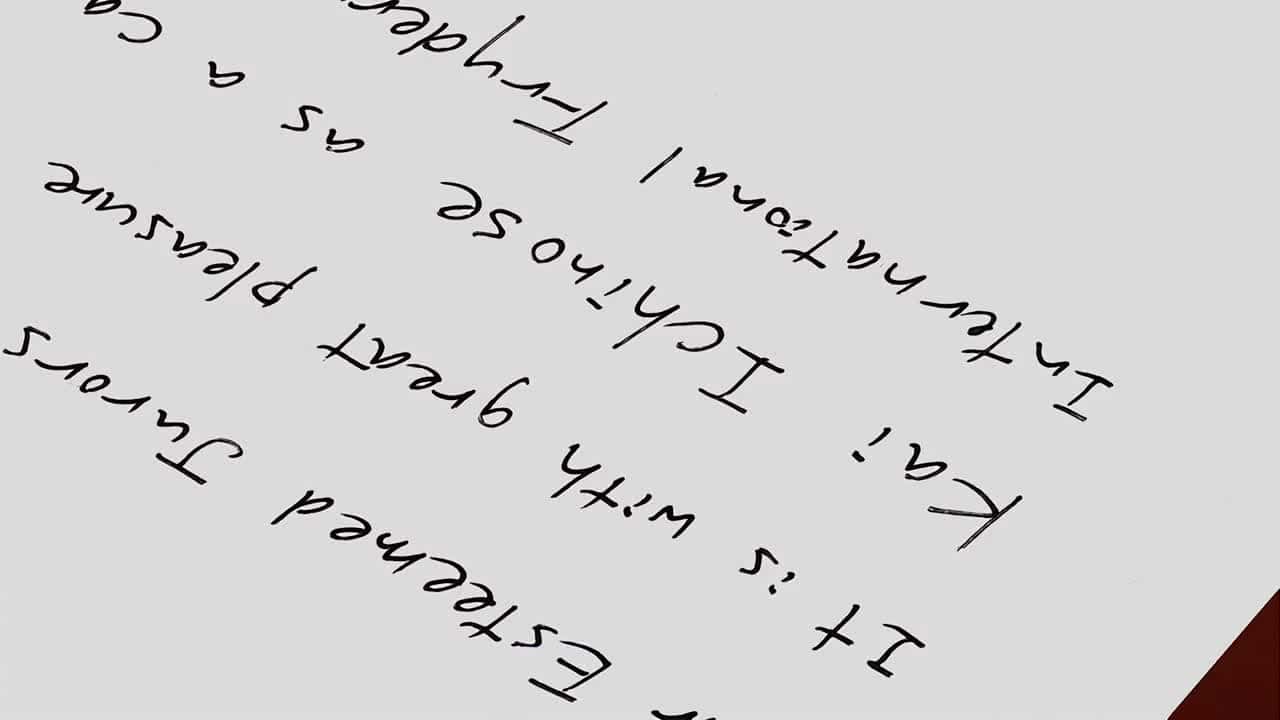 Esteemed Jurors
It is with great pleasure
Kai Ichinose as a
International